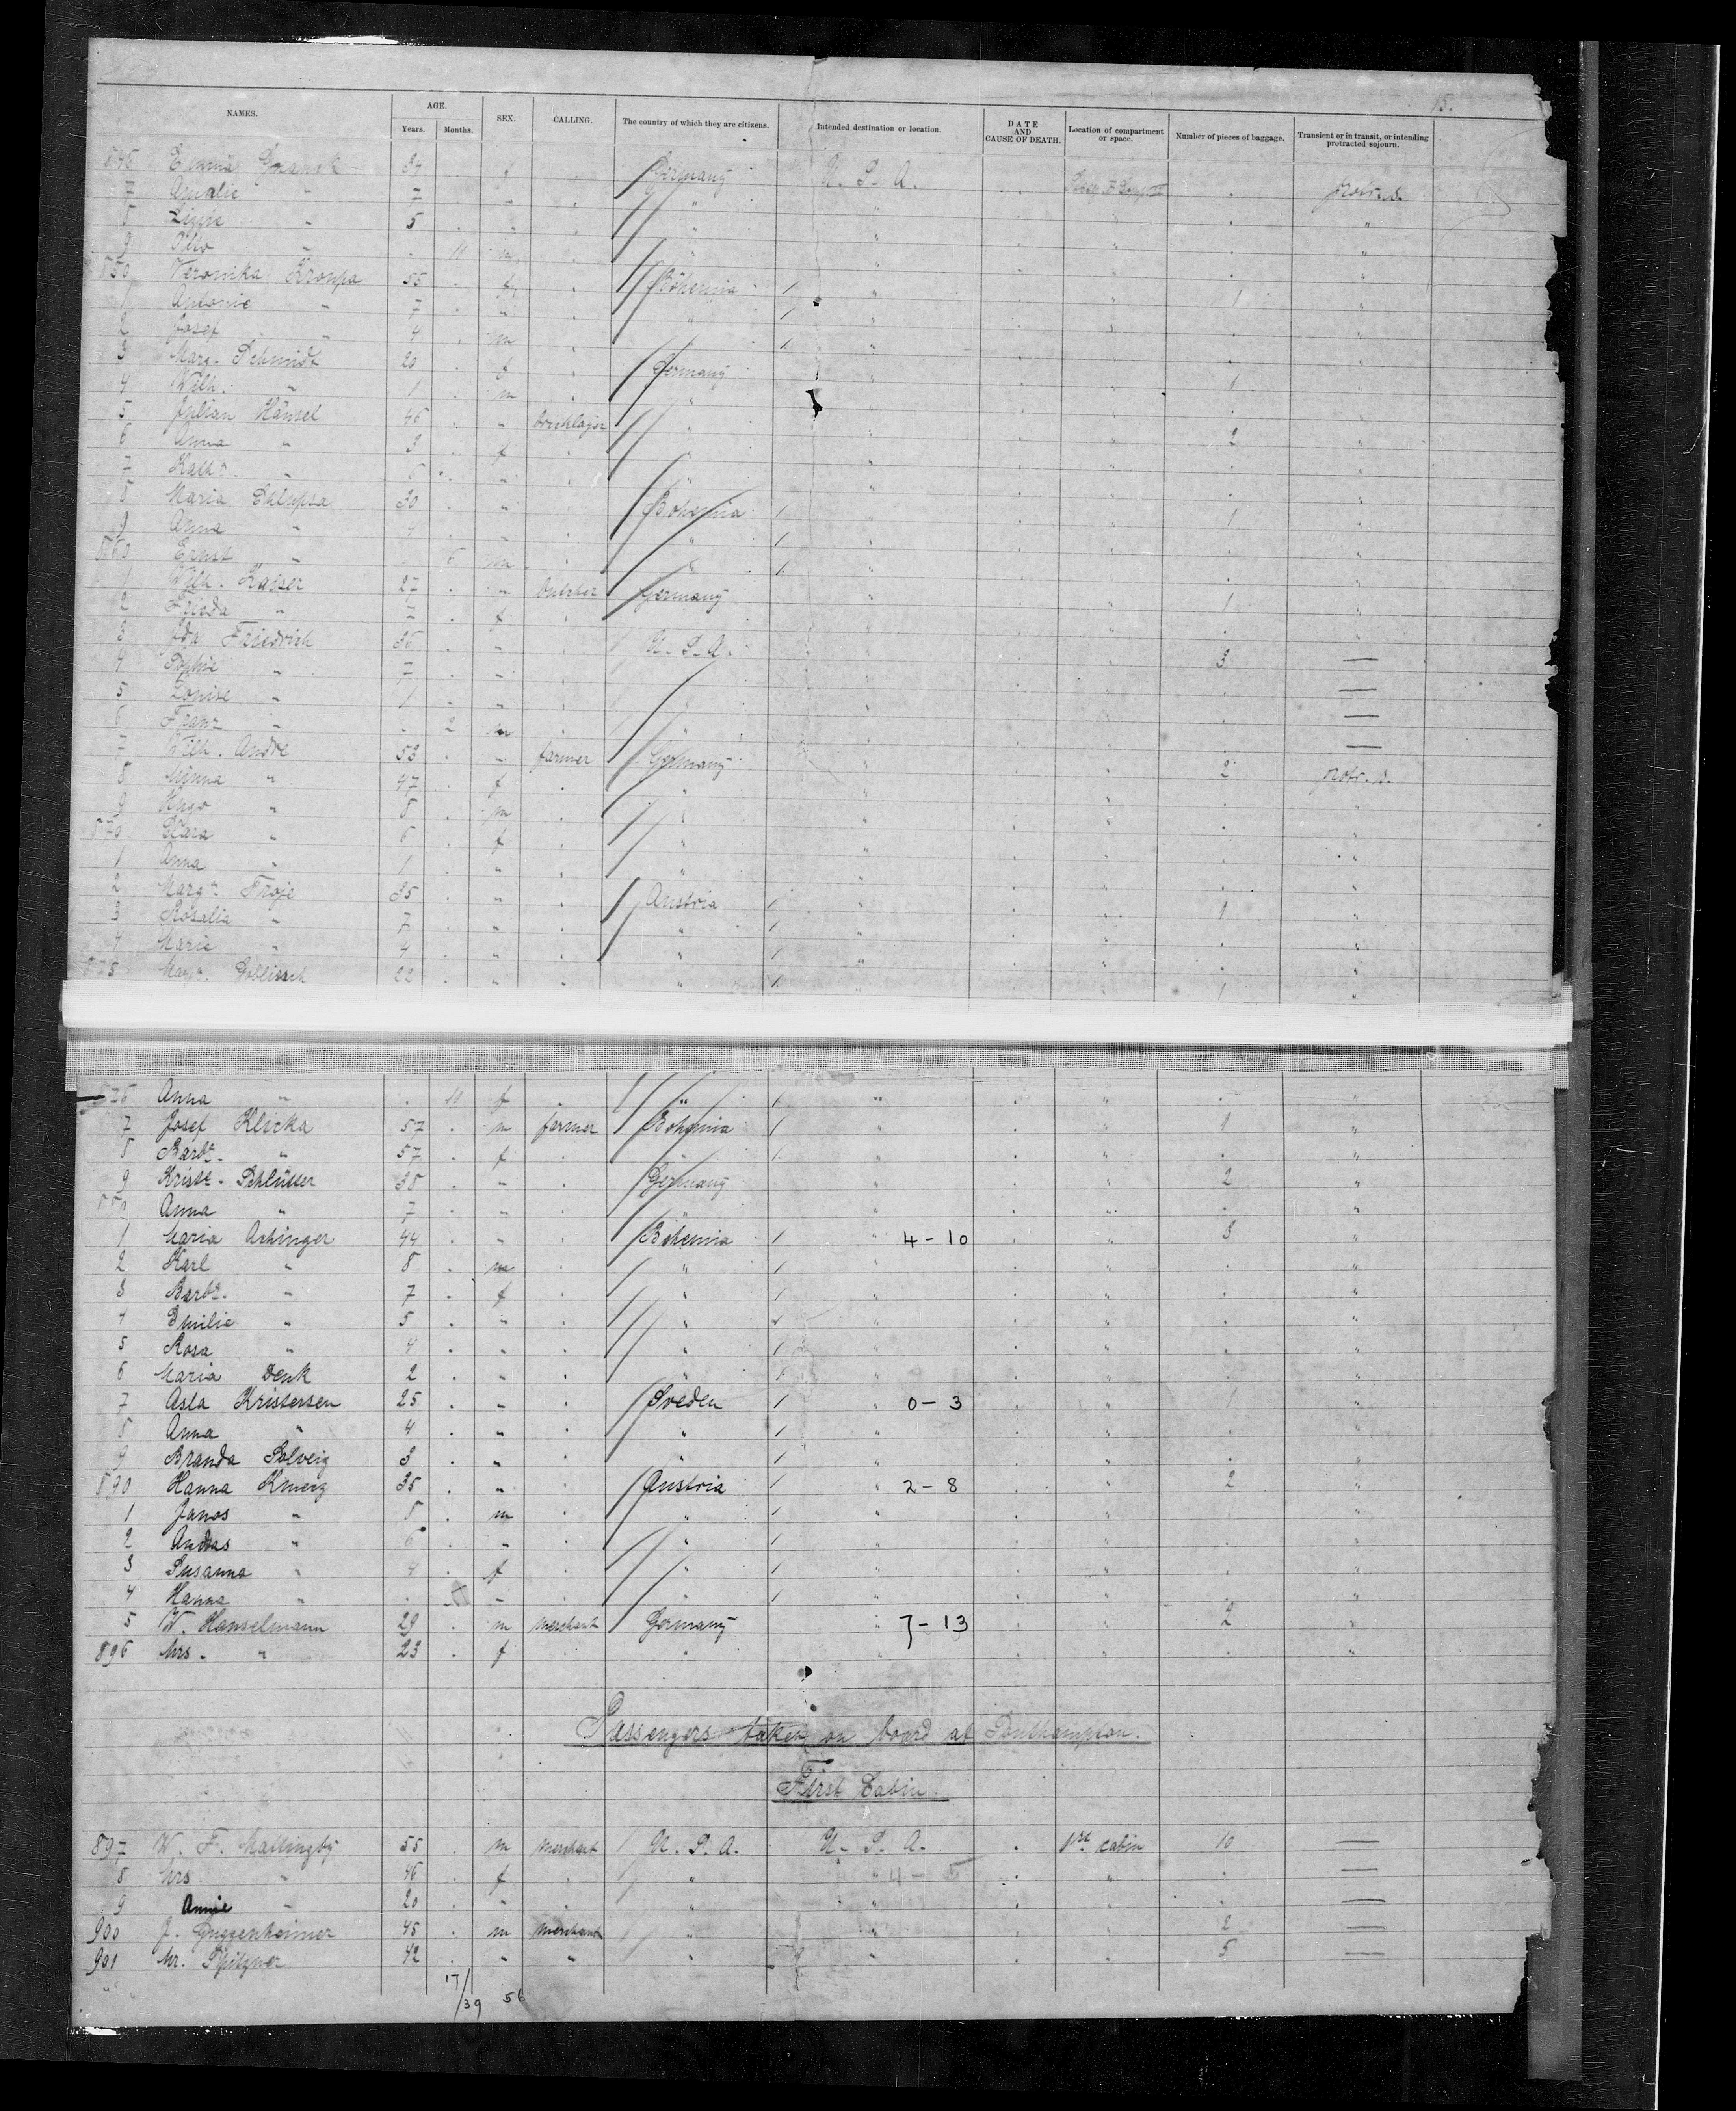 15.
NAMES. AGE. Years. Months. SEX. CALLING. The country of which they are citizens. Intended destination or location. DATE AND CAUSE OF DEATH. Location of compartment or space. Number of pieces of baggage. Transient or in transit, or intending protracted sojourn.
846 Emma 34 f Germany U. S. A. protr. s.
7 Amalie " 7 " " "
8 Lizzie " 5 " " " "
9 Otto " 11 m " " "
850 Veronika Kroupa 55 f Böhemia " " 1 "
1 Antonie " 7 " " " "
2 Josef " 4 m " " "
3 Marg. Schmidt 20 f Germany " " 1 "
4 Wilh. " 1 m " " "
5 Julian Hänsel 46 " bricklayer " " " 2 "
6 Anna " 3 f " " "
7 Kath. " 6 " " " "
8 Maria Chlupsa 30 " Bohemia " " 1 "
9 Anna " 7 " " " "
860 Ernst " 6 m " " "
1 Wilh. Kaiser 27 " butcher Germany " " 1 "
2 Frieda " 7 f " " "
3 Ida Friedrich 36 " U. S. A. " " 3 —
4 Sophie " 7 " " " —
5 Louise " 1 " " " —
6 Franz " 2 m " " —
7 Wilh. Andre 53 " farmer Germany " " 2 protr. s.
8 Minna " 47 f " " " "
9 Hugo " 8 m " " " "
870 Clara " 6 f " " " "
1 Anna " 1 " " " " "
2 Marg. Froje 35 " Austria " " 1 "
3 Rosalia " 7 " " " " "
4 Marie " 4 " " " " "
875 Marg. 22 " " " " 1 "
876 Anna " 10 f " " " "
7 Josef Klicka 57 m farmer Bohemia " " 1 "
8 Barb. " 57 f " " " "
9 Krist. Schlüsser 38 " Germany " " 2 "
880 Anna " 7 " " " " "
1 Maria Achinger 44 " Böhemia " 4-10 " 3 "
2 Karl " 8 m " " " "
3 Barb. " 7 f " " " "
4 Emilie " 5 " " " " "
5 Rosa " 4 " " " " "
6 Maria Denk 2 " " " " "
7 Asla Kristersen 25 " Sveden " 0-3 " 1 "
8 Anna " 4 " " " " "
9 Branda Solveig 3 " " " " "
890 Hanna Kmerz 35 " Austria " 2-8 " 2 "
1 Janos " 8 m " " " "
2 Andras " 6 " " " " "
3 Susanna " 4 f " " " "
4 Hanna " " " " " "
5 W. Hanselmann 29 m merchant Germany " 7-13 " 2 "
896 Mrs. " 23 f " " " "
Passengers taken on board at Southampton.
First Cabin.
897 W. F. Mattingby 55 m merchant U. S. A. U. S. A. 1st cabin 10 —
8 Mrs " 46 f " " 4-5 " —
9 Annie " 20 " " " " —
900 J. Guggenheimer 45 m merchant " " " 2 —
901 Mr. Spitzner 42 " " " " " 5 —
17/39 56